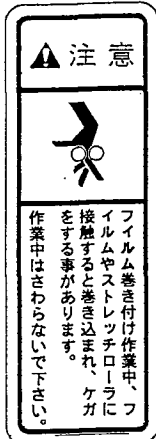 注意
フイルム巻き付け作業中、フ
イルムやストレッチローラに
接触すると巻き込まれ、ケガ
をする事があります。
作業中はさわらないで下さい。